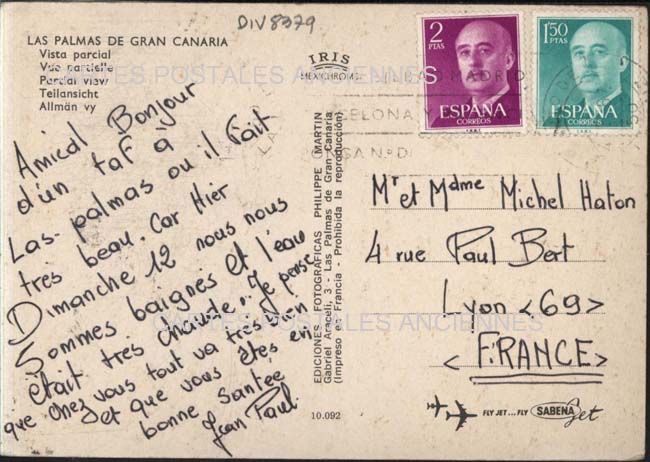 DIV8379
LAS PALMAS DE GRAN CANARIA
Vista parcial
Vue partielle
Parcial view
Teilansicht
Allmän vy
IRIS
MEXICHROME
2
PTAS
ESPAÑA
CORREOS
1'50
PTAS
ESPAÑA
CORREOS
CARTES POSTALES ANCIENNES
Amical Bonjour
d'un taf à
Las palmas ou il fait
très beau. Car Hier
Dimanche 12 nous nous
Sommes baignés et l'eau
était très chaude. Je pense
que chez vous tout va très bien
et que vous êtes en
bonne Santée
Jean Paul
EDICIONES FOTOGRAFICAS PHILIPPE MARTIN
Gabriel Araceli, 3 - Las Palmas de Gran Canaria
(Impreso en Francia - Prohibida la reproducción)
Mr et Mdme Michel Haton
4 rue Paul Bert
Lyon <69>
<FRANCE>
CARTES POSTALES ANCIENNES
10.092
FLY JET... FLY SABENA Jet